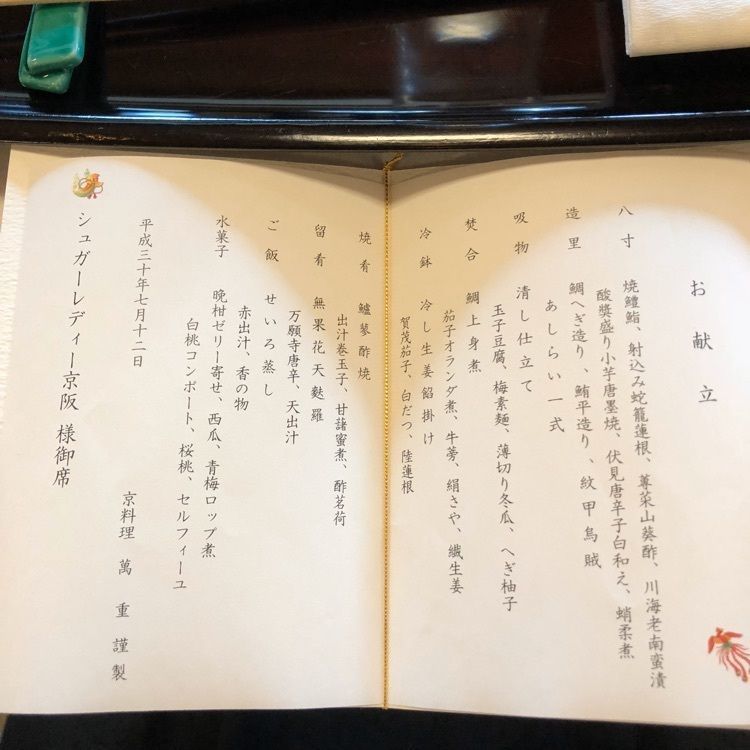 お献立
八寸 焼鱧鮨、射込み蛇籠蓮根、蓴菜山葵酢、川海老南蛮漬
酸漿盛り小芋唐墨焼、伏見唐辛子白和え、蛸柔煮
造里 鯛へぎ造り、鮪平造り、紋甲烏賊
あしらい一式
吸物 清し仕立て
玉子豆腐、梅素麺、薄切り冬瓜、へぎ柚子
焚合 鯛上身煮
茄子オランダ煮、牛蒡、絹さや、繊生姜
冷鉢 冷し生姜餡掛け
賀茂茄子、白だつ、陸蓮根
焼肴 鱸蓼酢焼
出汁巻玉子、甘藷蜜煮、酢茗荷
留肴 無果花天麩羅
万願寺唐辛、天出汁
ご飯 せいろ蒸し
赤出汁、香の物
水菓子 晩柑ゼリー寄せ、西瓜、青梅ロップ煮
白桃コンポート、桜桃、セルフィーユ
平成三十年七月十二日
京料理 萬重 謹製
シュガーレディー京阪 様御席